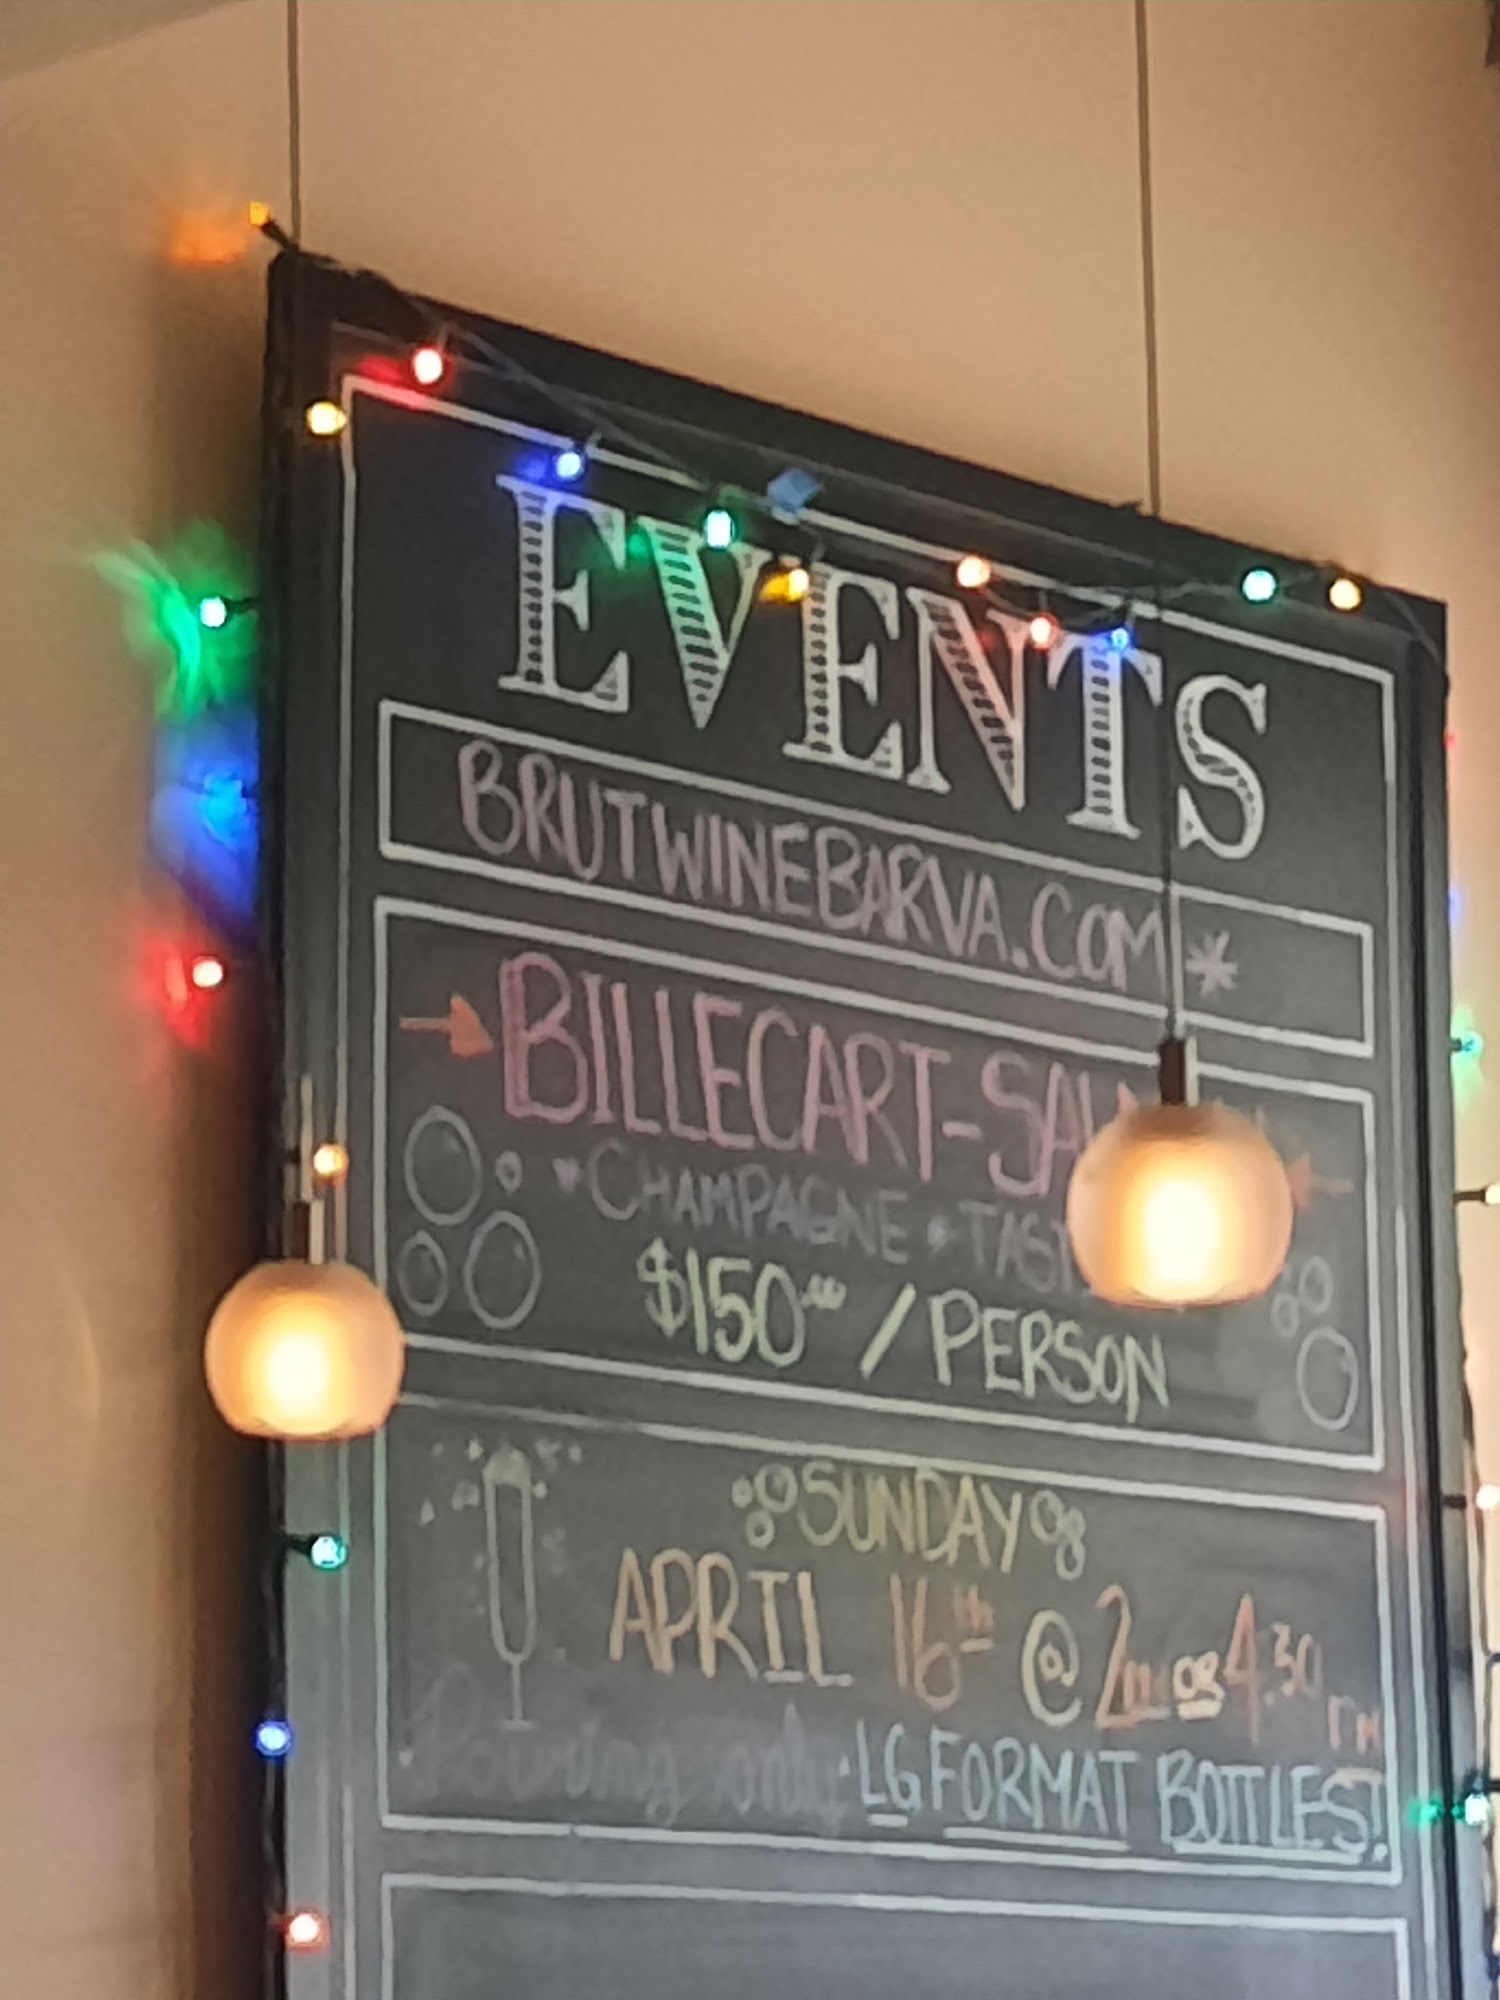 EVENTS
BRUTWINEBARVA.COM*
BILLECART-SAL
CHAMPAGNE TAST
$150.00 / PERSON
SUNDAY
APRIL 16th @ 2PM OR 4:30PM
Pouring only LG FORMAT BOTTLES!